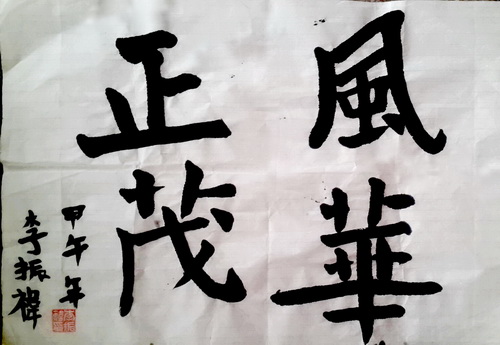 風華
正茂
甲午年
李振禕